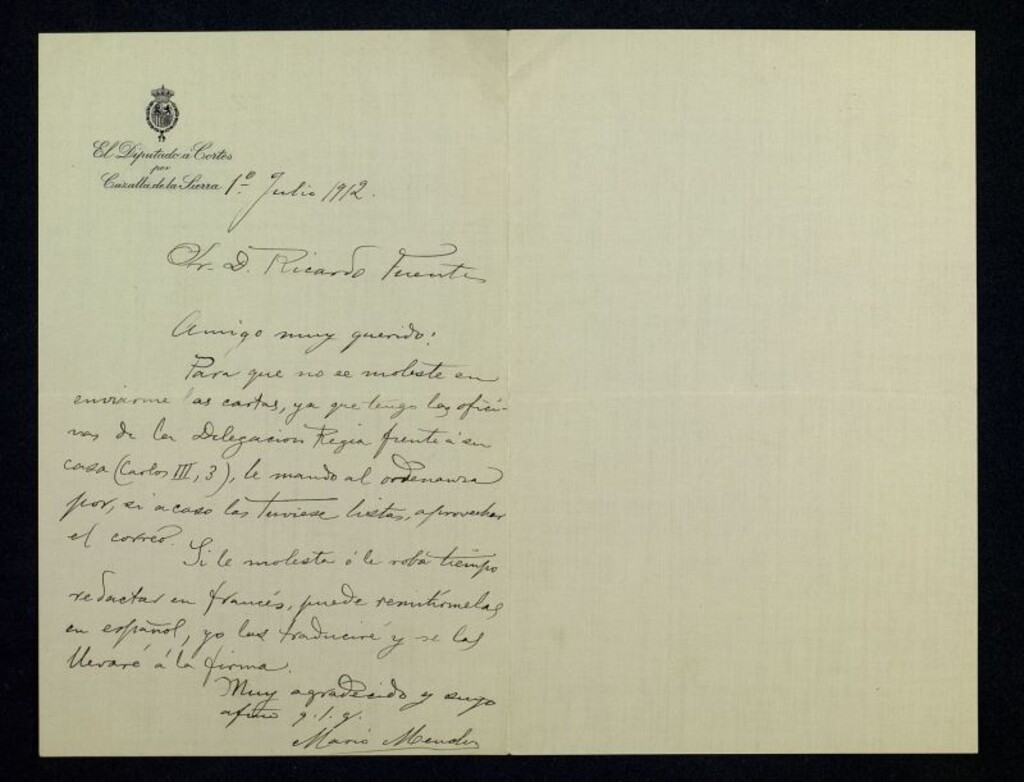 El Diputado á Cortes
por
Cazalla de la Sierra
1º Julio 1912.
Sr. D. Ricardo Fuente
Amigo muy querido:
Para que no se moleste en
enviarme las cartas, ya que tengo las ofici-
nas de la Delegación Regia frente á su
casa (Carlos III, 3), le mando al ordenanza
por, si acaso las tuviese listas, aprovechar
el correo.
Si le molesta ó le roba tiempo
redactar en francés, puede remitírmelas
en español, yo las traduciré y se las
llevaré á la firma.
Muy agradecido y suyo
afmo
Mario Mendez